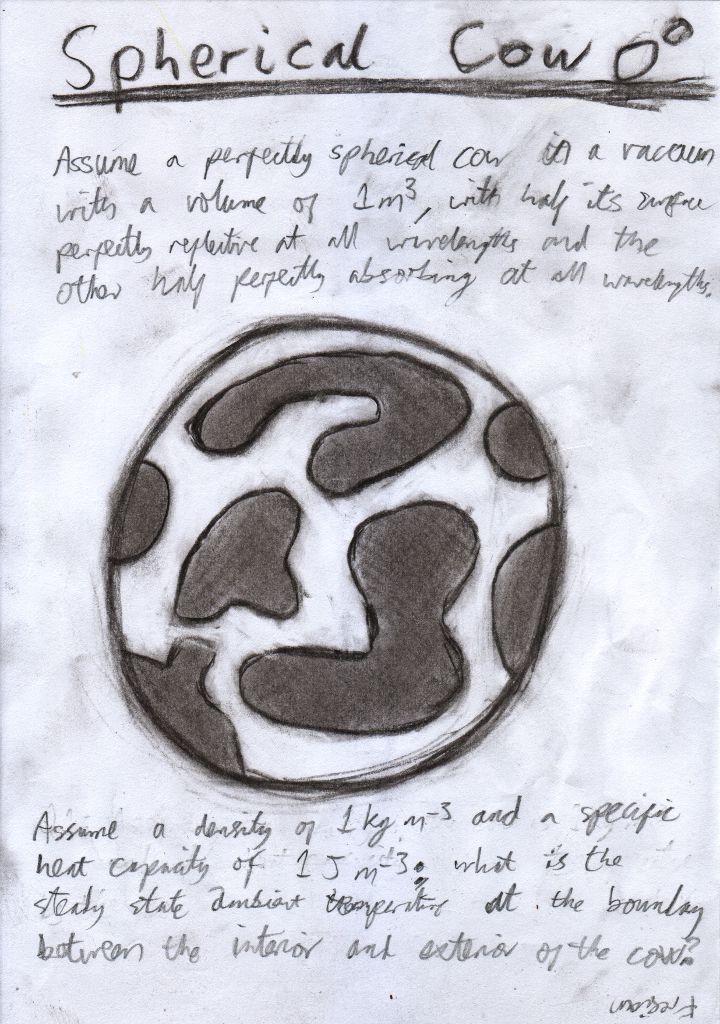 Spherical Cow
Assume a perfectly spherical cow in a vacuum
with a volume of 1m³, with half its surface
perfectly reflective at all wavelengths and the
other half perfectly absorbing at all wavelengths.
Assume a density of 1kg m⁻³ and a specific
heat capacity of 1 J m⁻³: what is the
steady state ambient temperature at the boundary
between the interior and exterior of the cow?